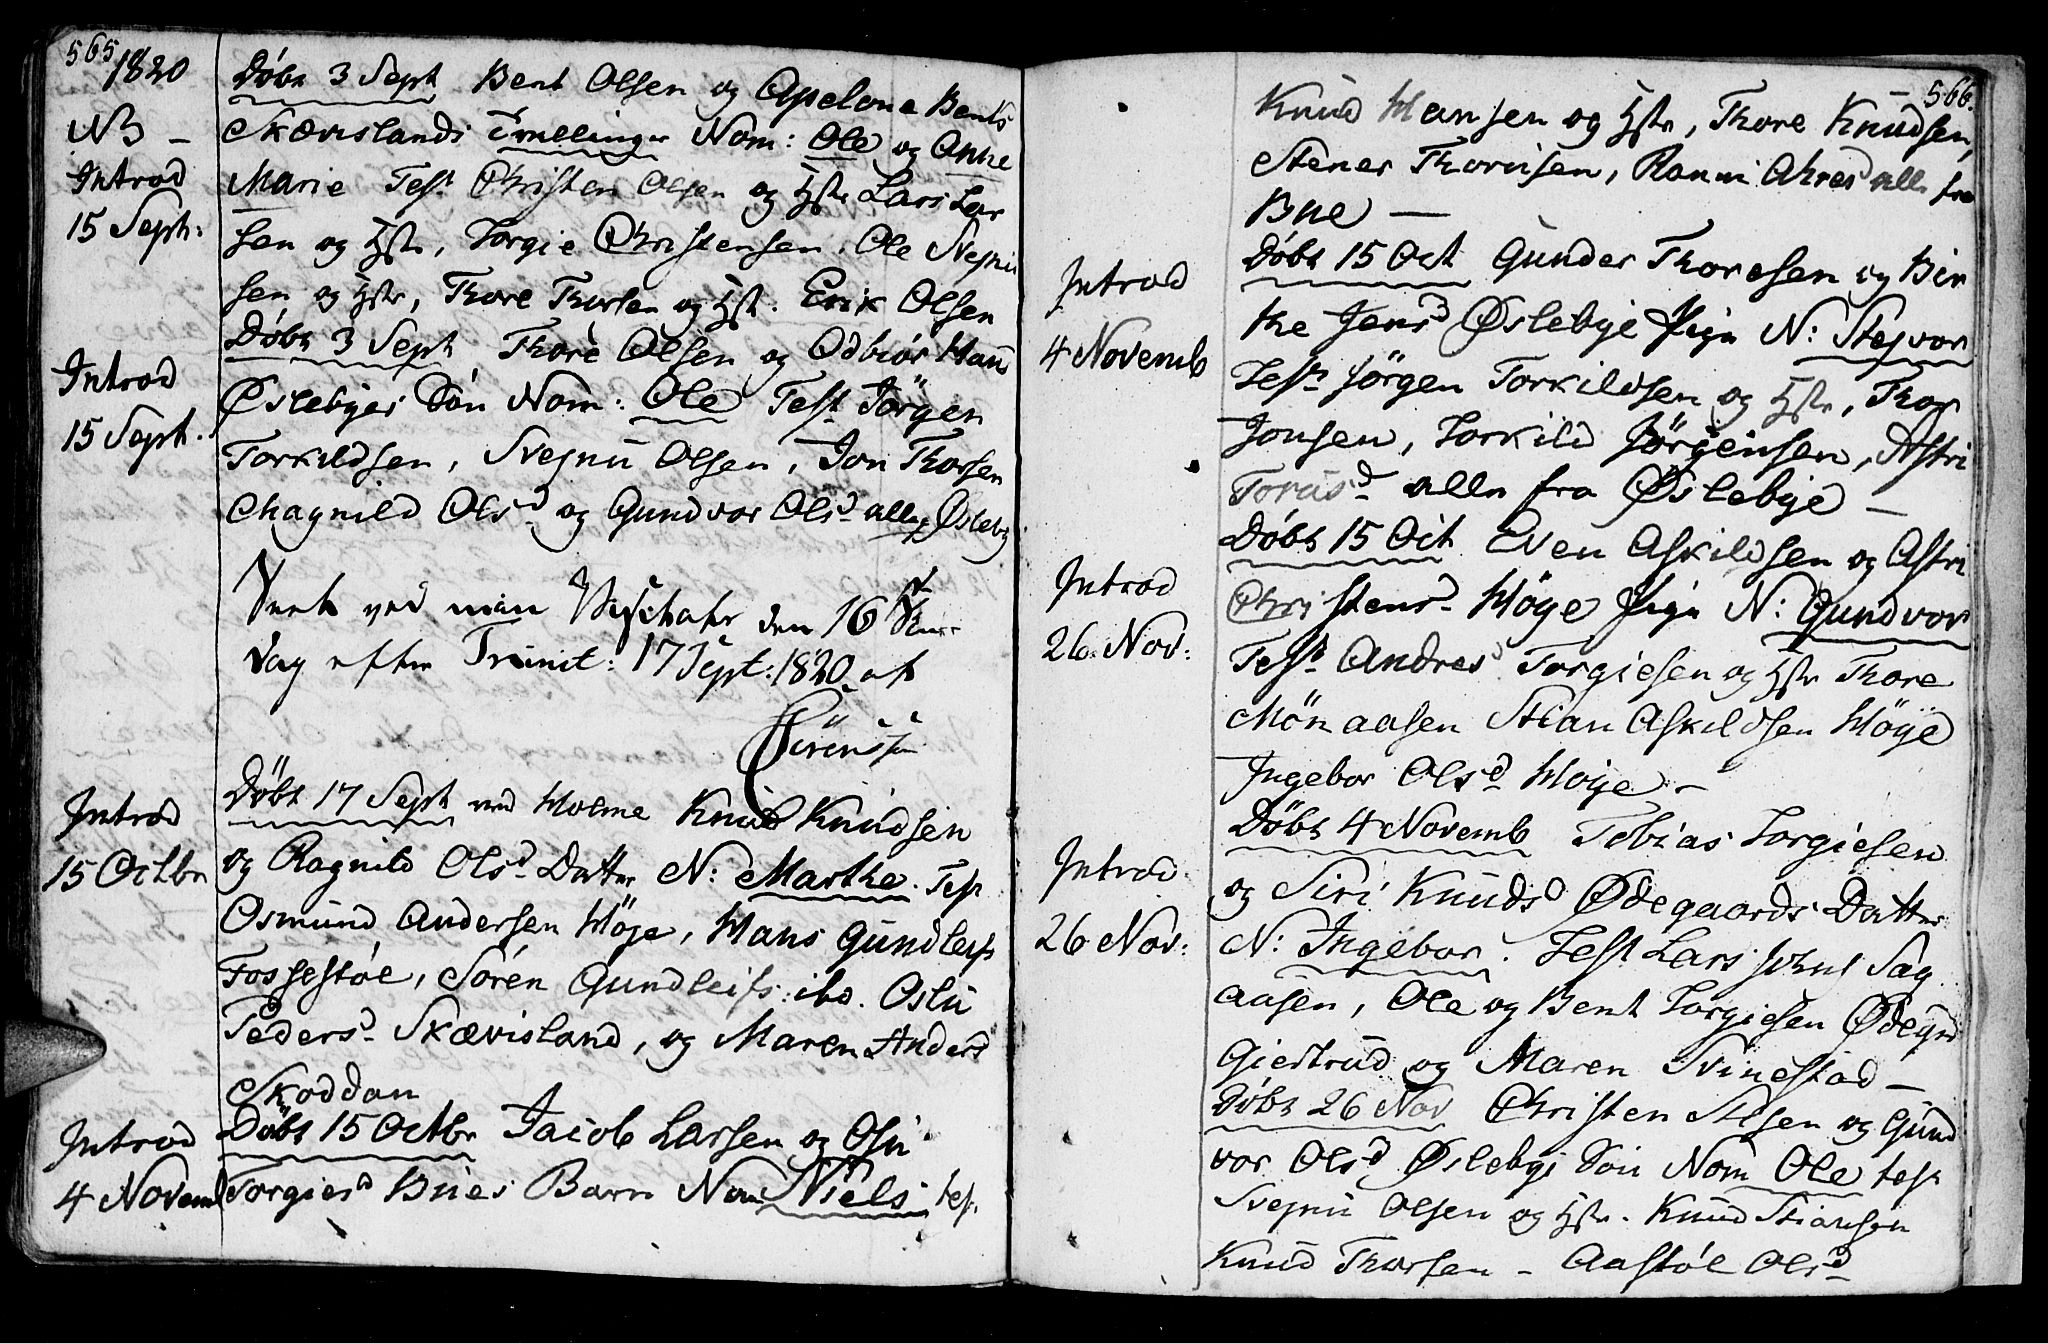 565
1820
Døbt 3 Sept Bent Olsen og Apelone Bents
NB –
Skævislands Tvillinger Nom: Ole og Anne
Introd
15 Sept:
Marie Test Christen Olsen og Hstr Lars Lar
sen og Hstr, Torgie Christensen, Ole Svejnu
sen og Hstr, Thore Thorsen og Hstr. Erik Olsen
Introd
15 Sept.
Døbt 3 Sept Thore Olsen og Odbiør Hans
Øslebyes Søn Nom: Ole Test Jörgen
Torkildsen, Svejnu Olsen, Jon Thorsen
Chagnild Olsd og Gundvor Olsd alle Øsleby
ved min den 16
dag efter Trinit: 17 Sept: 1820 af
Introd
15 Octbr
Døbt 17 Sept ved Holme Knud Knudsen
og Ragnild Olsd Datter N: Marthe. Test
Osmund Andersen Höje, Hans Gundleifs
Fossestøl, Sören Gundleifs: ibd. Oslu
Pedersd Skævisland, og Maren Andersd
Skoddan
Introd
4 Novemb
Døbt 15 Octbr Jacob Larsen og Osu
Torgiesd Bues Barn Nom Niels test.
566.
Knud Hansen og Hstr, Thore Knudsen,
Stener Thorusen, Ranni Akresd alle fra
Bue —
Introd
4 Novemb
Døbt 15 Oct Gunder Thoresen og Bir
the Jensd Øslebye Pige N: Stejvor
Test Jörgen Torkildsen og Hstr, Thor
Jonsen, Torkild Jörgensen, Astri
Torusd alle fra Øslebye —
Introd
26 Nov:
Døbt 15 Oct Even Askildsen og Astri
Christensd Höye Pige N: Gundvor
Test Andres Torgiesen og Hstr Thore
Mönaasen Stian Askildsen Höye
Ingebor Olsd Höye –
Introd
26 Nov:
Döbt 4 Novemb Tobias Torgiesen
og Siri Knudsd Ødegaards Datter
N: Ingebor. Test Lars Johns Sag
aasen, Ole og Bent Torgiesen Ødegrd
Giertrud og Maren Svinestad —
Døbt 26 Nov Christen Olsen og Gund
vor Olsd Øslebye Søn Nom Ole test
Svejnu Olsen og Hstr. Knud Stiansen
Knud Thorsen – Aastøl Olsd